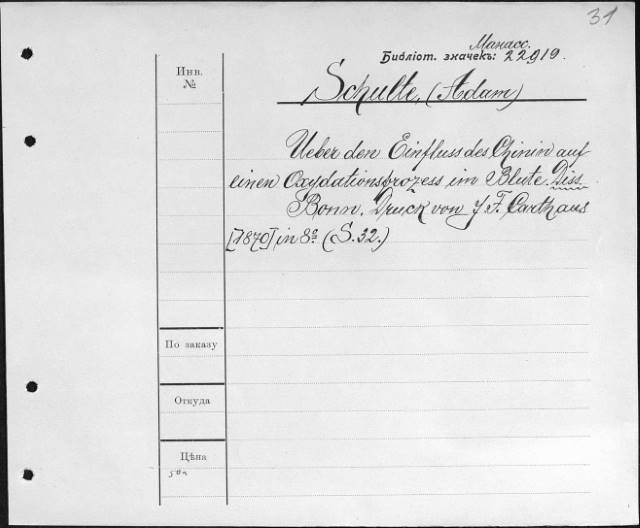 31
Манасс.
Библіот. значекъ: 22919.
Инв.
№
Schulte, (Adam)
Ueber den Einfluss des Chinin auf
einen Oxydationsprozess im Blute. Diss.
Bonn. Druck von J. F. Carthaus
[1870] in 8º (S. 32.)
По заказу
Откуда
Цѣна